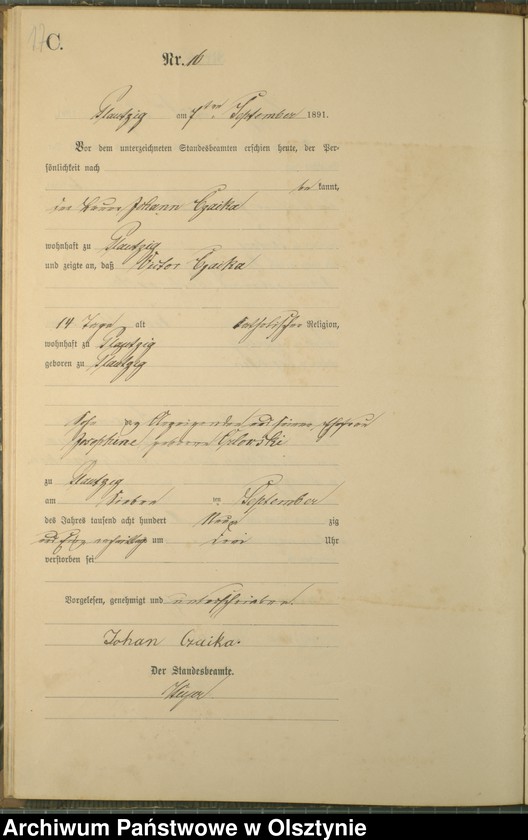 17
C.
Nr. 16
Plautzig am 7ten September 1891.
Vor dem unterzeichneten Standesbeamten erschien heute, der Per-
sönlichkeit nach
be kannt,
Johann Czaika
wohnhaft zu Plautzig
und zeigte an, daß Victor Czaika
14 Tage alt katholischer Religion,
wohnhaft zu Plautzig
geboren zu Plautzig
Sohn des Anzeigenden und seiner Ehefrau
Josephine geborene
zu Plautzig
am Sieben ten September
des Jahres tausend acht hundert Neun zig
und Eins um drei Uhr
verstorben sei
Vorgelesen, genehmigt und unterschrieben.
Johan Czaika.
Der Standesbeamte.
Archiwum Państwowe w Olsztynie